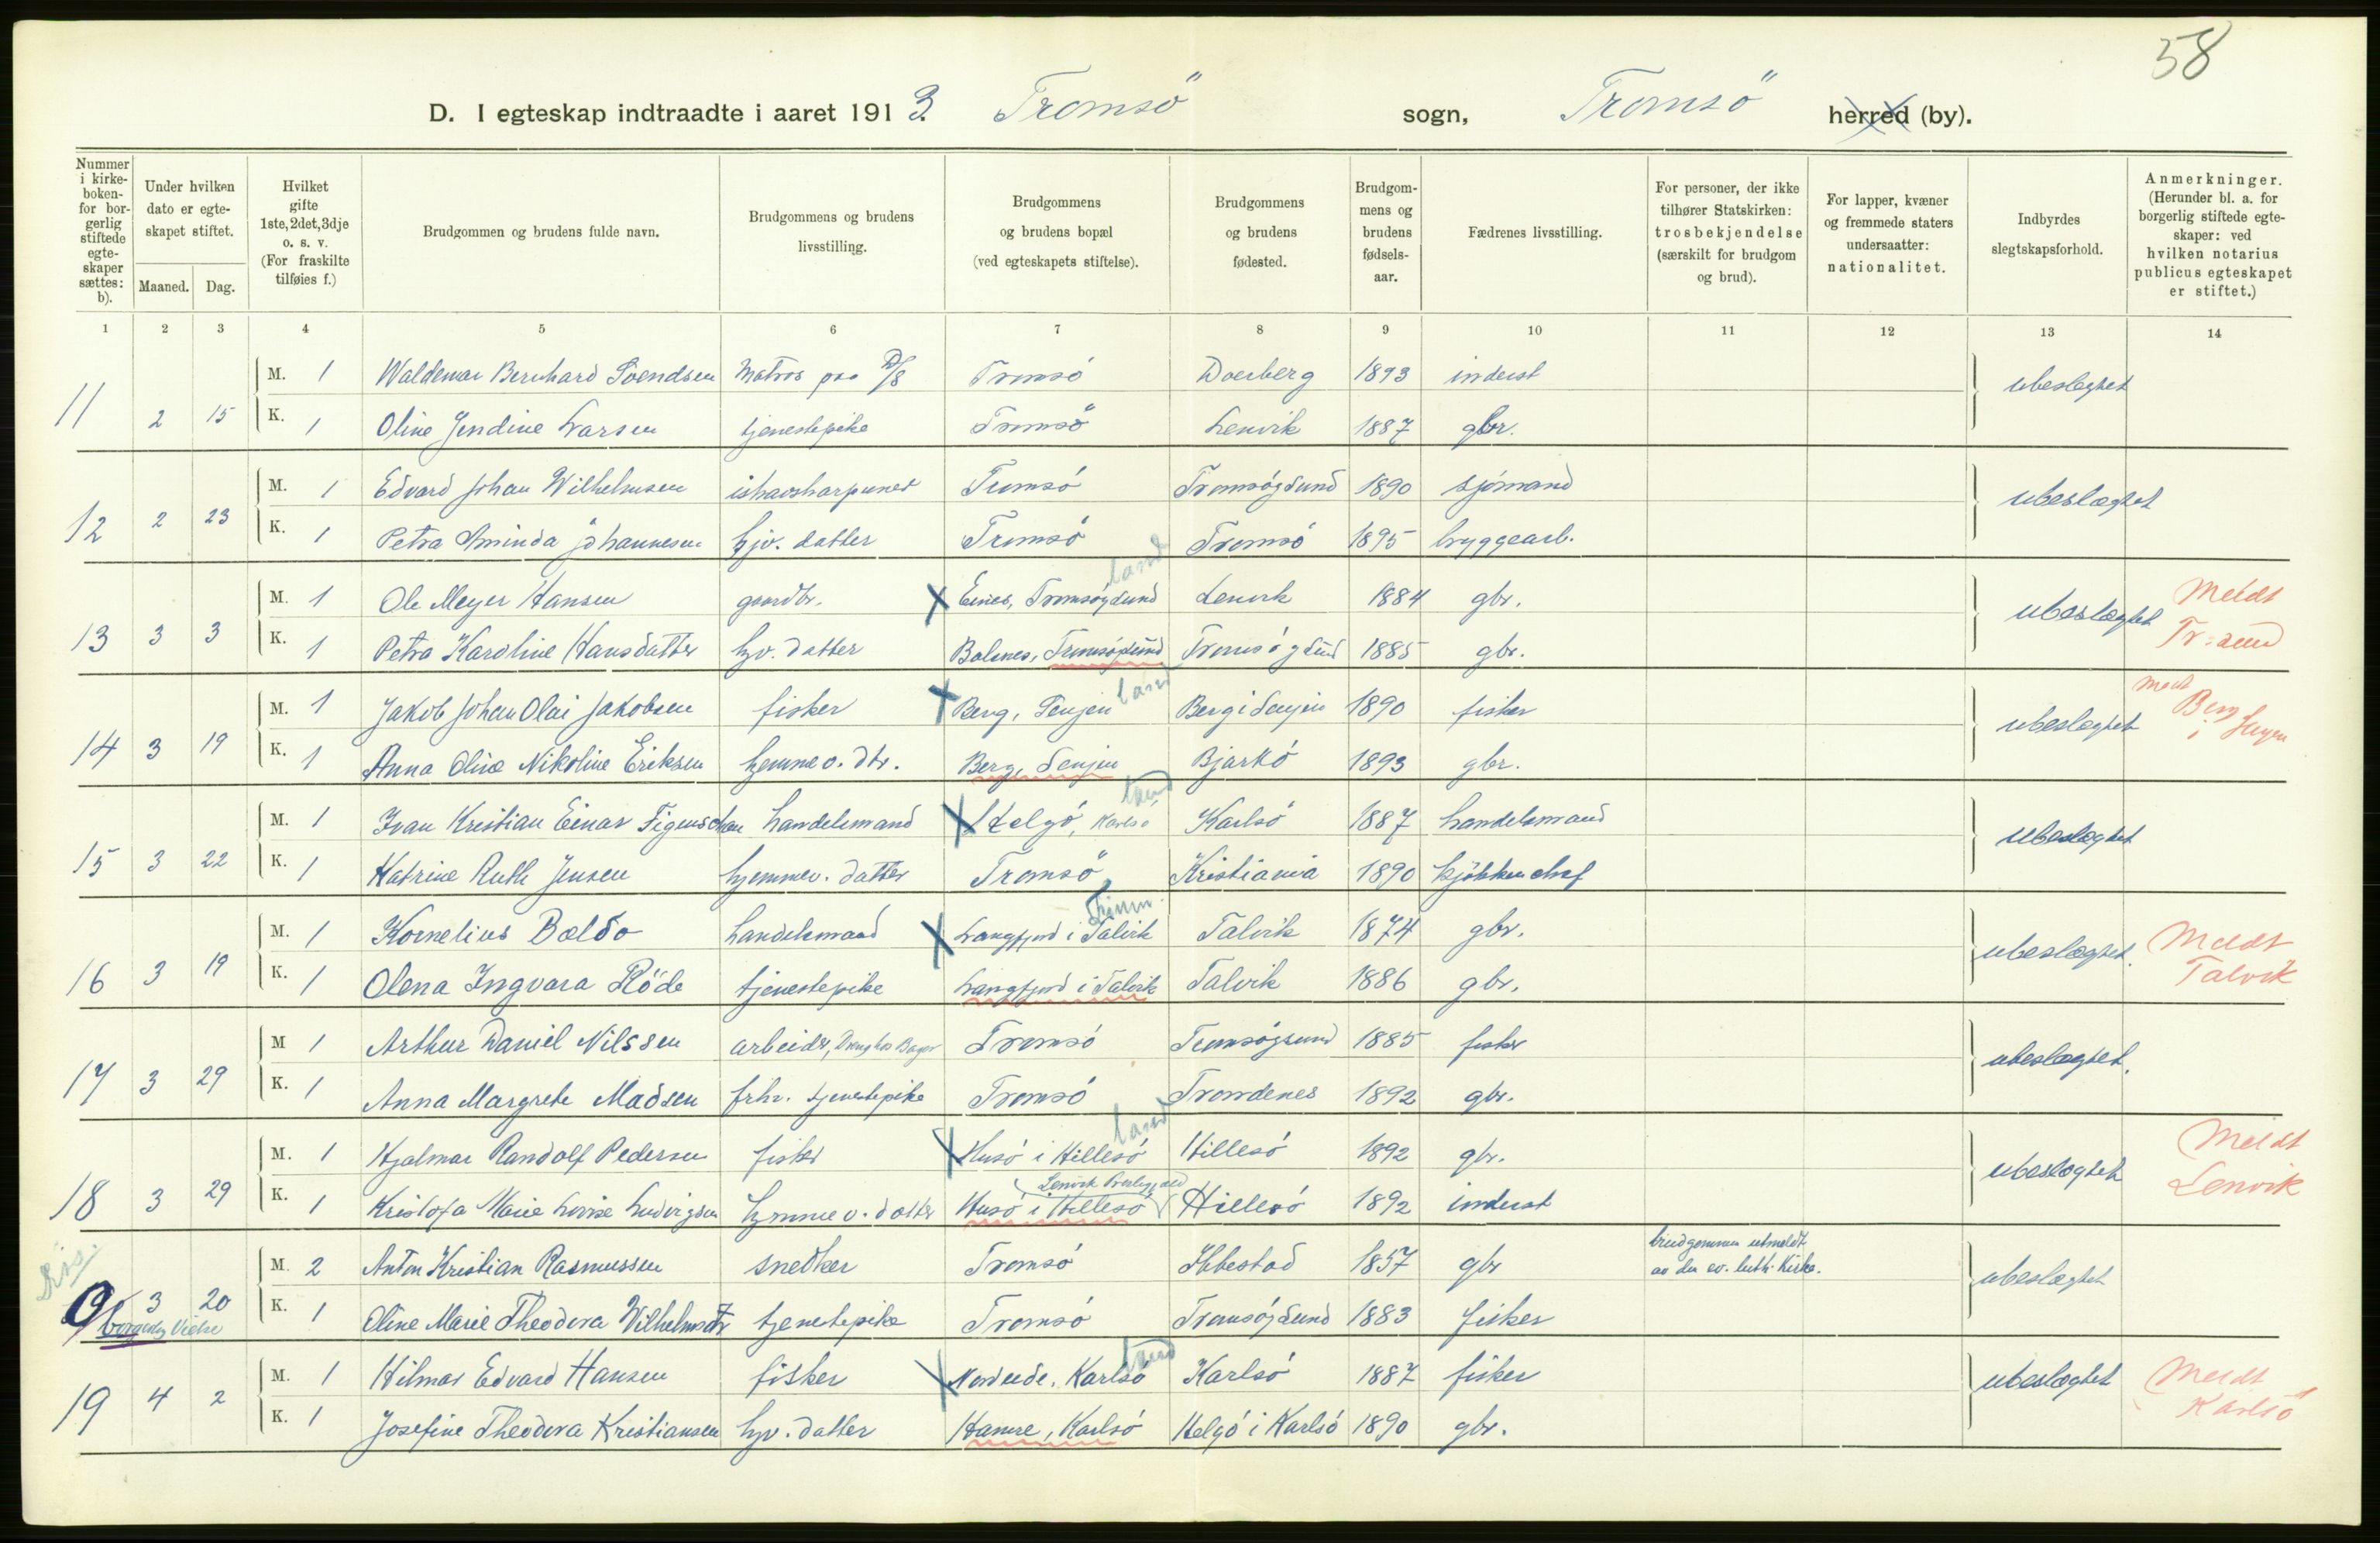 58
D. I egteskap indtraadte i aaret 1913. Tromsö sogn, Tromsö herred (by).
Nummer i kirkeboken- for borgerlig stiftede egteskaper sættes: b).
Under hvilken dato er egteskapet stiftet.
Maaned. Dag.
Hvilket gifte 1ste, 2det, 3dje o. s. v. (For fraskilte tilføies f.)
Brudgommen og brudens fulde navn.
Brudgommens og brudens livsstilling.
Brudgommens og brudens bopæl (ved egteskapets stiftelse).
Brudgommens og brudens fødested.
Brudgommens og brudens fødsels-aar.
Fædrenes livsstilling.
For personer, der ikke tilhører Statskirken: trosbekjendelse (særskilt for brudgom og brud).
For lapper, kvæner og fremmede staters undersaatter: nationalitet.
Indbyrdes slegtskapsforhold.
Anmerkninger. (Herunder bl. a. for borgerlig stiftede egteskaper: ved hvilken notarius publicus egteskapet er stiftet.)
1 2 3 4 5 6 7 8 9 10 11 12 13 14
M. 1 Waldemar Bernhard Svendsen Matros paa D/S Tromsö 1893 inderst ubeslegtet
11 2 15 K. 1 Oline Jendine Larsen tjenestepike Tromsö Lenvik 1887 gbr.
M. 1 Edvard Johan Wilhelmsen ishavsharpuner Tromsö Tromsöysund 1890 sjömand ubeslægtet
12 2 23 K. 1 Petra Aminda Johannesen hjv. datter Tromsö Tromsö 1895 bryggearb.
land
M. 1 Ole Meyer Hansen gaardbr. X Eines, Tromsöysund Lenvik 1884 gbr. ubeslægtet Meldt
13 3 3 K. 1 Petra Karoline Hansdatter hjv. datter Balsnes, Tromsöysund Tromsöysund 1885 gbr. Tr.sund
land
M. 1 Jakob Johan Olai Jakobsen fisker X Berg, Senjen Berg i Senjen 1890 fisker ubeslægtet Meldt Berg i Senjen
14 3 19 K. 1 Anna Oline Nikoline Eriksen hjemmev. dtr. Berg, Senjen Bjarkö 1893 gbr.
land
M. 1 Ivan Kristian Einar Figenschau handelsmand X Helgö, Karlsö Karlsö 1887 handelsmand ubeslægtet
15 3 22 K. 1 Katrine Ruth Jensen hjemmev. datter Tromsö Kristiania 1890 kjökkenchef
Finm.
M. 1 Kornelius Boldo handelsmand X Langfjord i Talvik Talvik 1874 gbr. ubeslægtet. Meldt
16 3 19 K. 1 Olena Ingvara Röde tjenestepike Langfjord i Talvik Talvik 1886 gbr. Talvik
M 1 Arthur Daniel Nilssen arbeider, Tromsö Tromsöysund 1885 fisker ubeslægtet.
17 3 29 K. 1 Anna Margrete Madsen frhv. tjenestepike Tromsö Trondenes 1892 gbr.
land
M. 1 Hjalmar Randolf Pedersen fisker X Husö i Hillesö Hillesö 1892 gbr. ubeslægtet Meldt
18 3 29 K. 1 Kristofa Marie Lovise Ludvigsen hjemmev. datter Husö i Hillesö (Lenvik Prestegjæld) Hillesö 1892 inderst Lenvik
Diss.
M. 2 Anton Kristian Rasmussen snedker Tromsö Ibbestad 1857 gbr brudgommen utmeldt av den ev. luth. Kirke. ubeslægtet
9b 3 20 K. 1 Oline Marie Theodora Wilhelmsdtr tjenestepike Tromsö Tromsöysund 1883 fisker
borgerlig Vielse
land
M. 1 Hilmar Edvard Hansen fisker X Nordeide, Karlsö Karlsö 1887 fisker ubeslægtet Meldt
19 4 2 K. 1 Josefine Theodora Kristiansen hjv. datter Hamre, Karlsö Helgö i Karlsö 1890 gbr. Karlsö